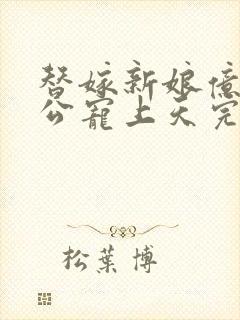 替嫁新娘億
公寵上天完
松葉博